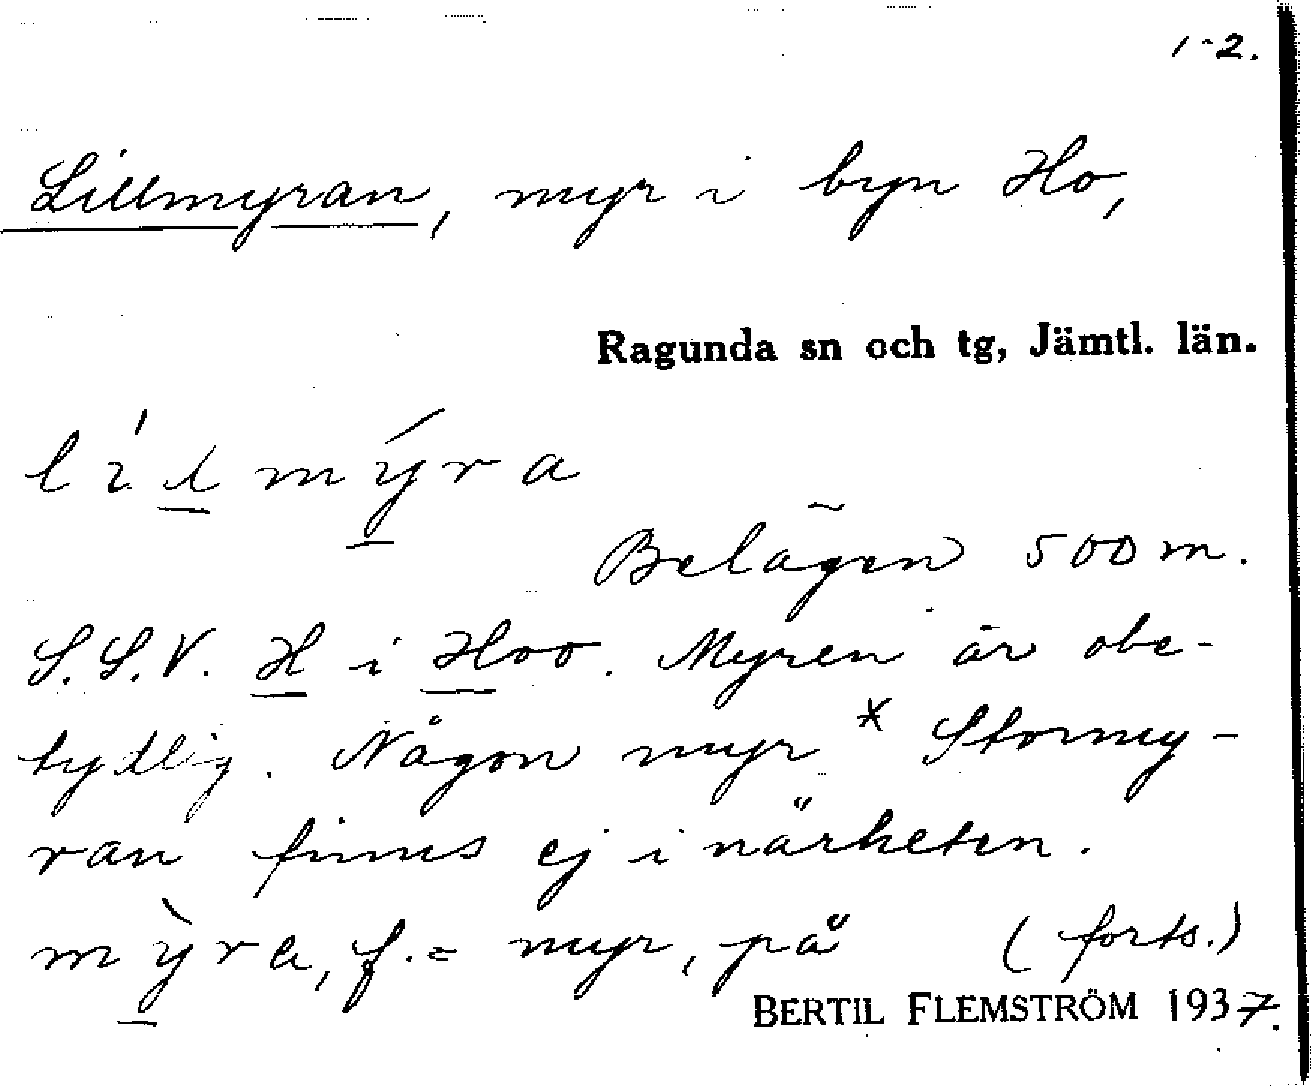 1-2.
Lillmyran, myr i byn Ho,
Ragunda sn och tg, Jämtl. län.
lílmýra
Belägen 500 m.
S.S.V. H i Hoo. Myren är obe-
tydlig. Någon myr * Stormy-
ran finns ej i närheten.
mỳra, f. = myr, på (forts.)
BERTIL FLEMSTRÖM 1937.